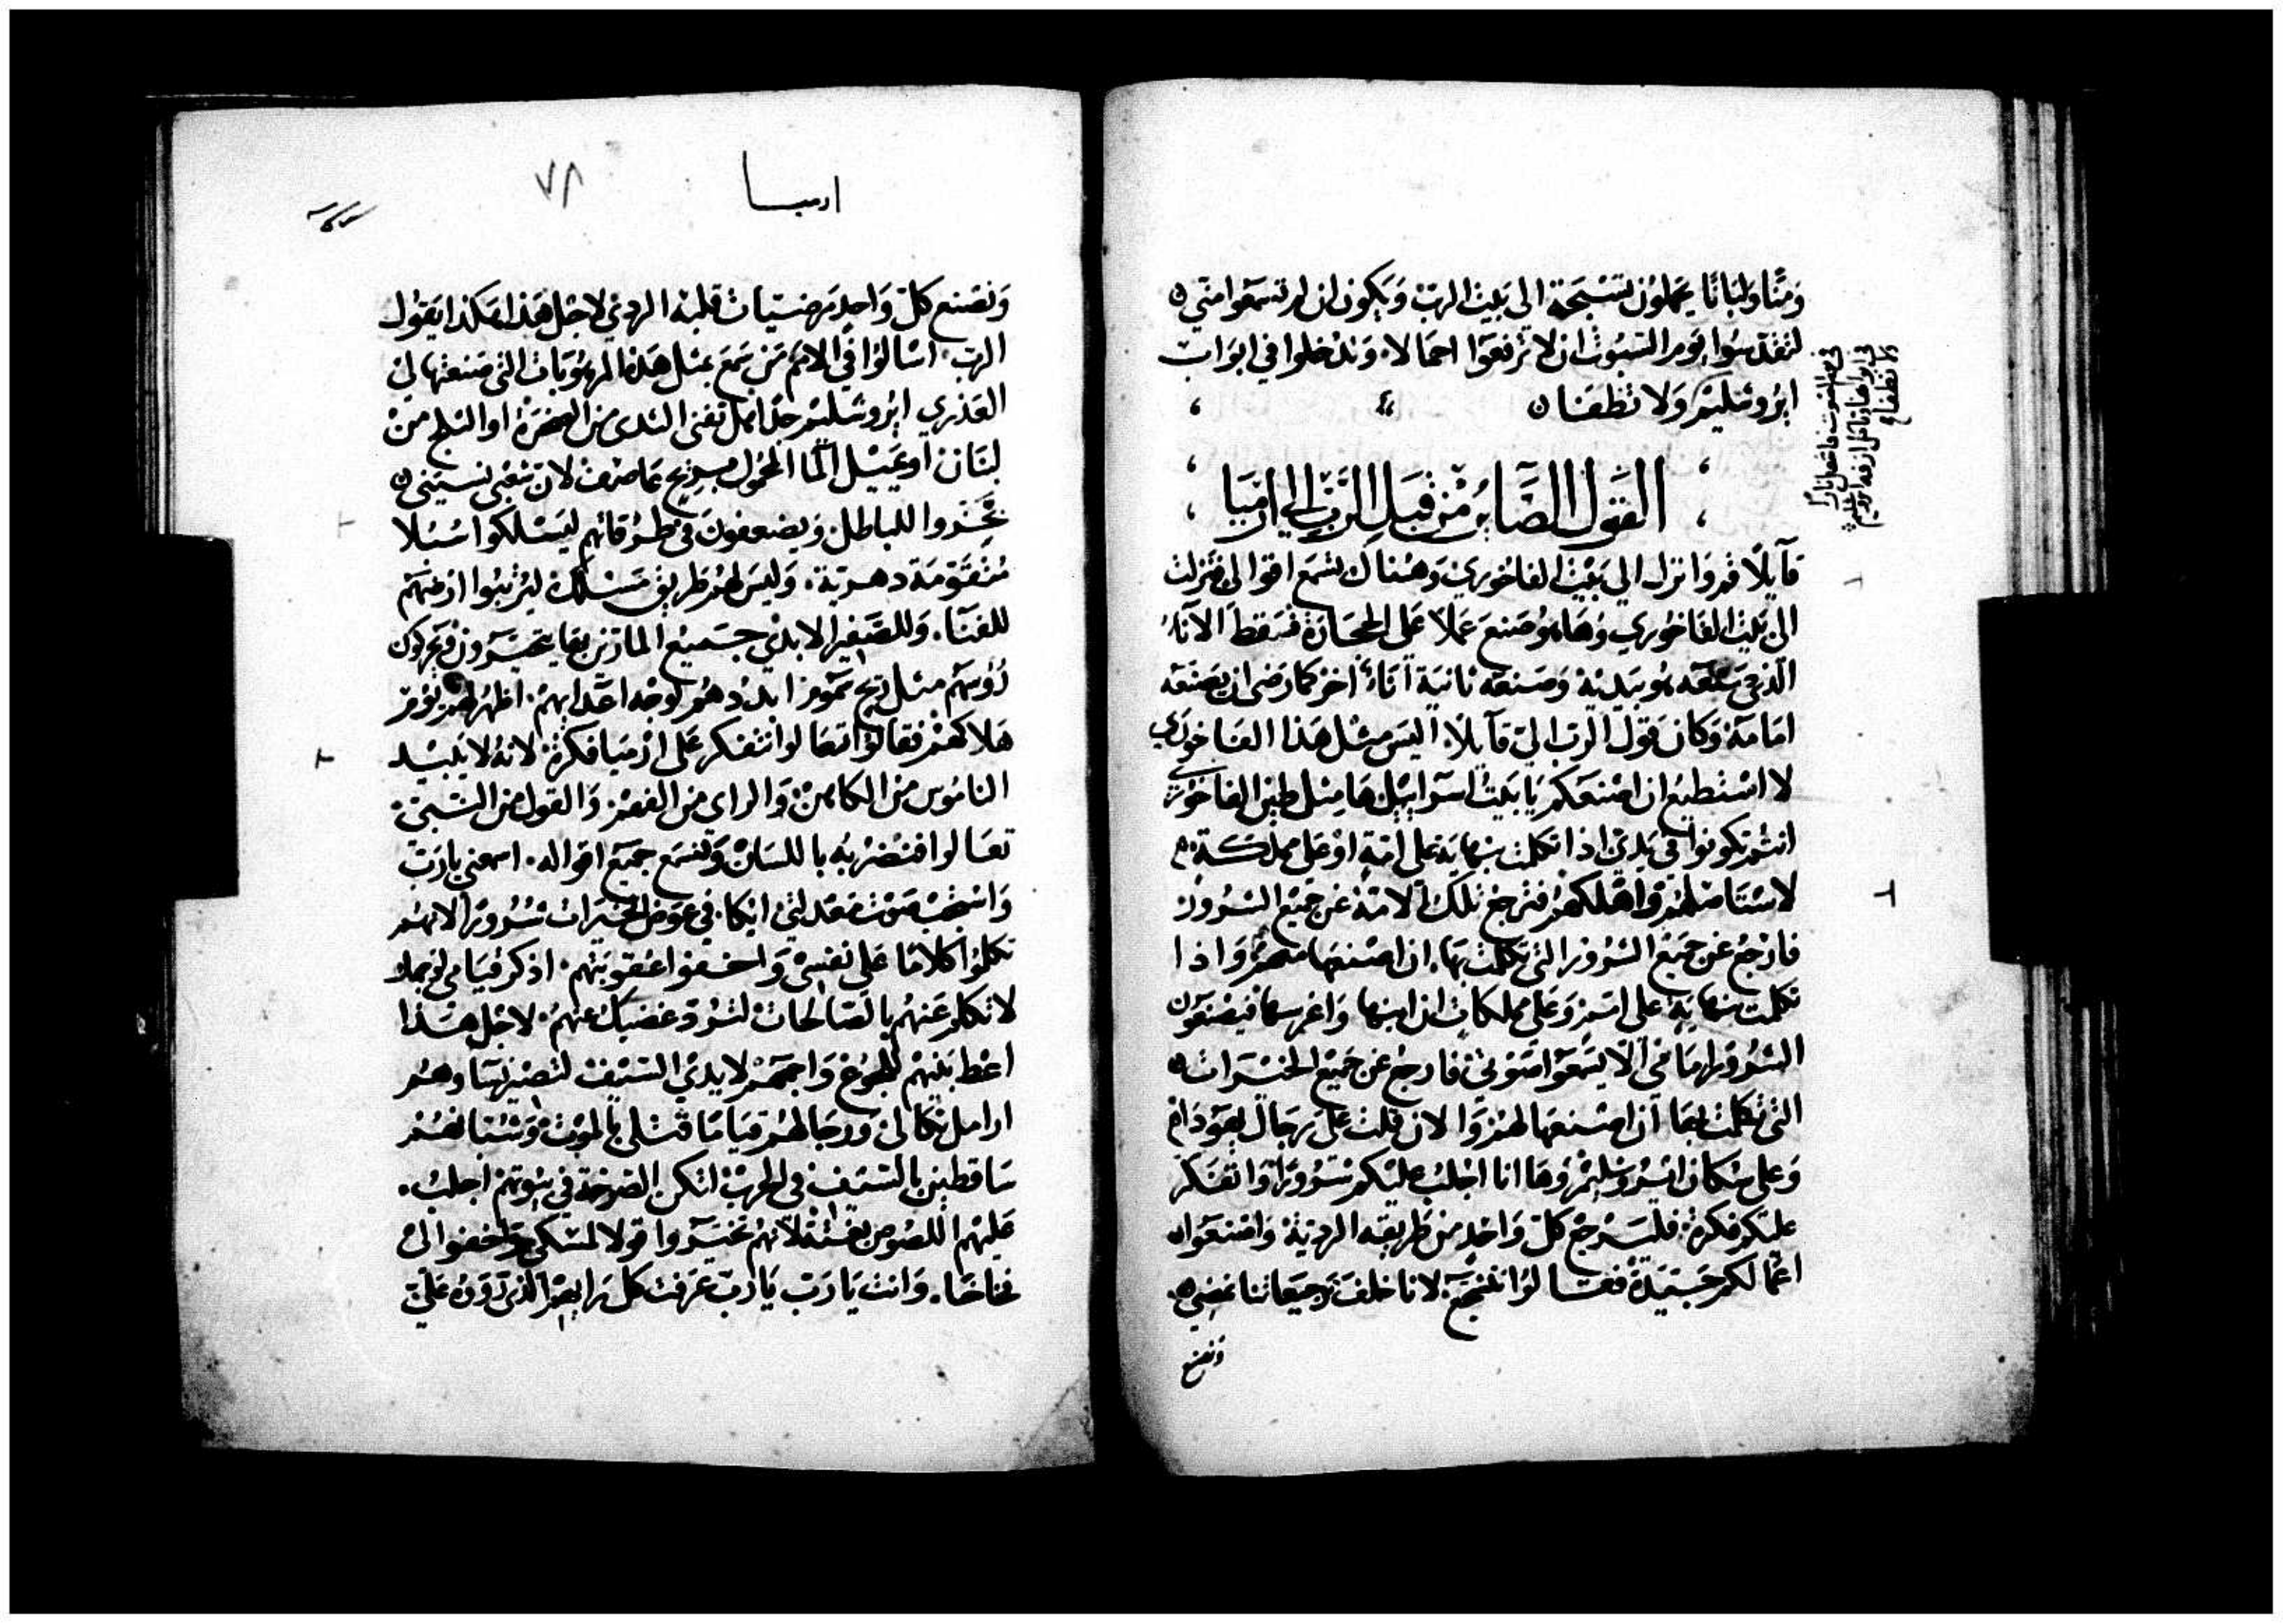 ومنًّا ولبانًا يحملون تسبحة الى بيت الرب ويكون ان لم تسمعوا مني
لتقدسوا يوم السبوت ان لا ترفعوا احمالا وتدخلوا في ابواب
ايروشليم ولا تطفا
في يوم السبوت فاشعل نارًا
في ابوابها وتاكل ازقة ايروشليم
ولا تطفاء
القول الصاير من قبل الرب الى ارميا
قايلًا قم وانزل الى بيت الفاخوري وهناك تسمع اقوالي فنزلت
الى بيت الفاخوري وها هو صنع عملًا على الحجارة فسقط الاناء
الذي صنعه هو بيديه وصنعه ثانية اناء اخر كما رضى ان يصنعه
امامه وكان قول الرب الي قايلًا اليس مثل هذا الفاخوري
لا استطيع ان اصنعكم يا بيت اسراييل ها مثل طين الفاخوري
انتم تكونوا في يدي اذا تكلمت بنهاية على امة او على مملكة
لاستاصلهم واهلكهم فترجع تلك الامة عن جميع الشرور
فارجع عن جميع الشرور التي تكلمت بها ان اصنعها معهم واذا
تكلمت بنهاية على امم وعلى مملكات ان ابنيها واغرسها فيصنعون
الشرور امامي الا يسمعوا صوتي فارجع عن جميع الخيرات
التي تكلمت بها ان اصنعها لهم والان قلت على رجال يهودا
وعلى سكان ايروشليم وها انا اجلب عليكم شرورًا واتفكر
عليكم فكرة فليرجع كل واحد من طريقه الردية واصنعوا
اعمالكم جيدة فقالوا نتشجع لانا خلف رجيعاتنا نمضي
ونصنع
ارميا
٧٨
ونصنع كل واحد مرضيات قلبه الردي لاجل هذا هكذا يقول
الرب اسالوا في الامم من سمع بمثل هذه المرهوبات التي صنعتها لي
العذري ايروشليم جدًا هل تفنى الثدى من الصخرة او الثلج من
لبنان او يميل الما المحمول بريح عاصف لان شعبي نسيني
بخروا للباطل ويضعفون في طرقاتهم ليسلكوا سبلا
متقومة دهرية وليس لهم طريق مسلك ليرتبوا ارضهم
للفنا وللصفير الابدي جميع المارين بها يتحيرون ويحركون
روسهم مثل ريح سموم ابددهم لوجه اعدايهم اظهر لهم يوم
هلاكهم فقالوا تعالوا نتفكر على ارميا فكرة لانه لا يبيد
الناموس من الكاهن والراى من الفهم والقول من النبي
تعالوا فنضربه باللسان ونسمع جميع اقواله اسمعني يارب
واستجب صوت معدلتي ايكافي عوض الخيرات شرورًا لانهم
تكلوا كلامًا على نفسي واخفوا عقوبتهم اذكر قيامي لوجهك
لاتكلم عنهم بالصالحات لترد غضبك عنهم لاجل هذا
اعط بنيهم للجوع واجمعهم لايدي السيف لتصير نساوهم
ارامل ثكالى ورجالهم قيامًا قتلى بالموت وشبانهم
ساقطين بالسيف في الحرب لتكن الصرخة في بيوتهم اجلب
عليهم اللصوص بغتة لانهم تخيروا قولا لمسكي واخفوا لي
فخاخا وانت يا رب يا رب عرفت كل رايهم الذي رووه علي